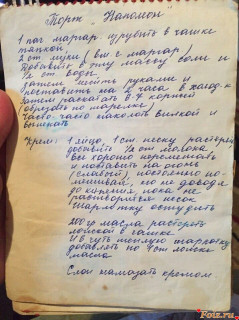 Торт "Наполеон"
1 пач маргар изрубить в чашке
тяпкой,
2 ст муки (вм с маргар)
Добавить в эту массу соли и
1/2 ст воды.
Затем месить руками и
поставить на 2 часа в холод-к
Затем раскатать 8 коржей
(обрезать по тарелке)
Часто, часто наколоть вилкой и
выпекать
Крем: 1 яйцо, 1 ст. песку растереть
добавить 1/2 ст молока
все хорошо перемешать
и поставить на огонь
(слабый), постоянно по-
мешивай, но не доводя
до кипения, пока не
растворится песок
Шарлотку остудить
200 гр масла растереть
ложкой в чашке
И в чуть теплую шарлотку
добавлять по 1 ст ложке
масла
Слои намазать кремом
Foiz.ru